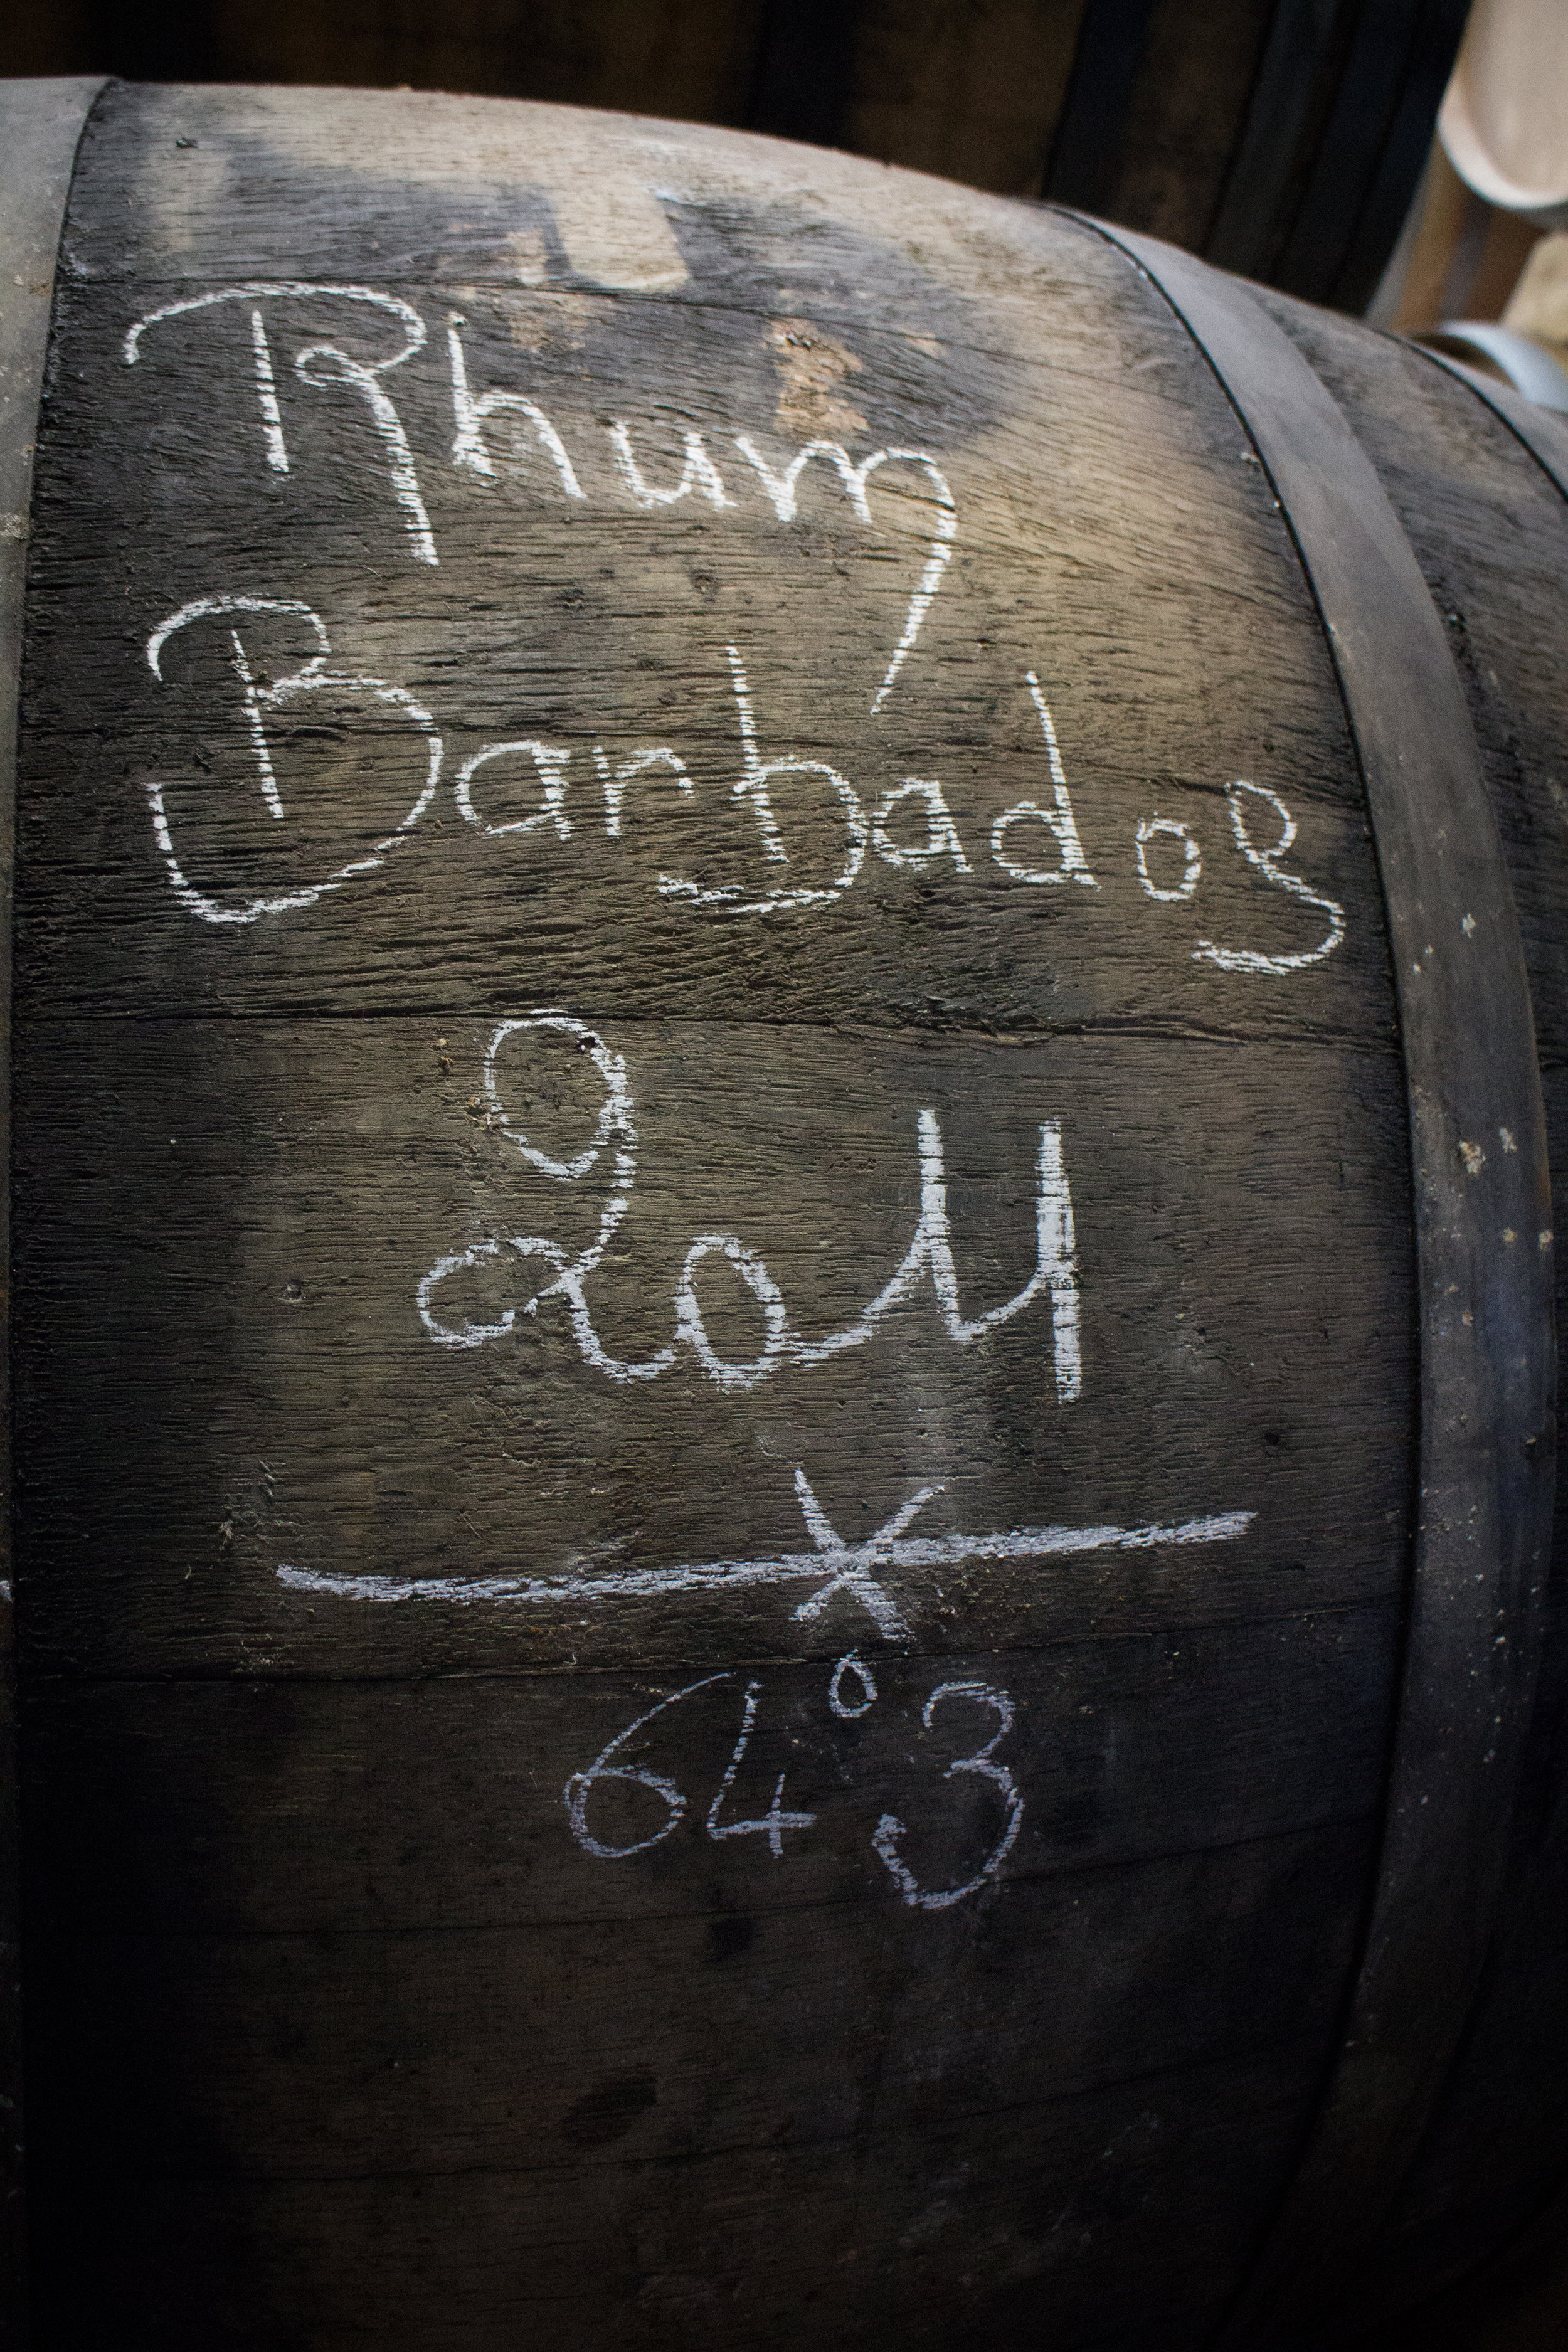 Rhum
Barbados
2011
64°3